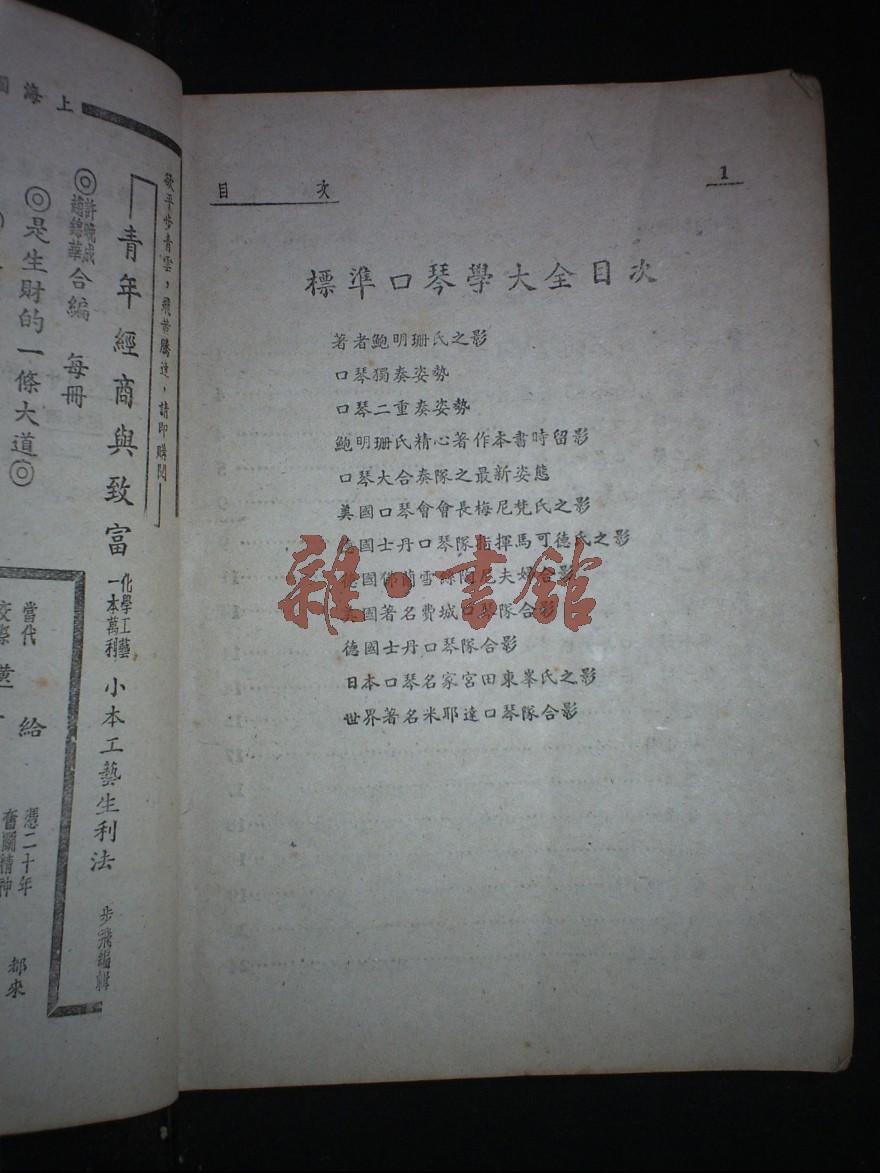 目次
1
標準口琴學大全目次
著者鮑明珊氏之影
口琴獨奏姿勢
口琴二重奏姿勢
鮑明珊氏精心著作本書時留影
口琴大合奏隊之最新姿態
美國口琴會會長梅尼梵氏之影
國士丹口琴隊指揮馬可德氏之影
國佛蘭雪絲閔尼夫婦合影
國著名費城口琴隊合影
德國士丹口琴隊合影
日本口琴名家宮田東峯氏之影
世界著名米耶達口琴隊合影
雜·書館
上海
欲平步青雲，飛黃騰達，請即購閱
青年經商與致富
化學工藝
一本萬利
小本工藝生利法
步飛編輯
◎許晚成
趙錦華
合編 每冊
◎是生財的一條大道◎
當代
給
憑二十年
奮鬭精神
都來